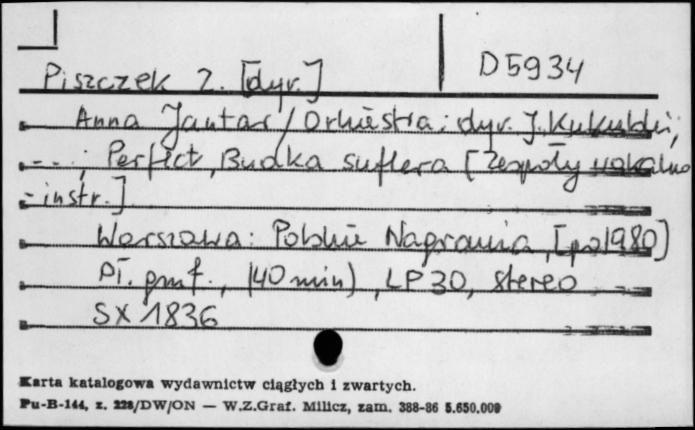 D 5934
Piszczek Z. [dyr.]
Anna Jantar / Orkiestra; dyr. J. Kukulski,
--- ; Perfect, Budka suflera [zespoły wokalno
-instr.]
Warszawa: Polskie Nagrania, [po 1980]
Pł. gmf., (40 min), LP 30, stereo
SX 1836
Karta katalogowa wydawnictw ciągłych i zwartych.
Pu-B-144, z. 228/DW/ON — W.Z.Graf. Milicz, zam. 388-86 5.650.000